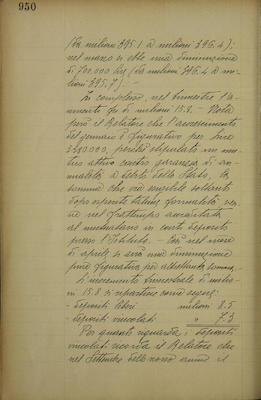 950
(da milioni 395.1 a milioni 396.4);
nel marzo si ebbe una diminuzione
di 700.000 lire (da milioni 396.4 a mi-
lioni 395.7). -
In complesso, nel bimestre l'au-
mento fu di milioni 15.8. - Nota
però il Relatore che l'accrescimento
del gennaio è figurativo per lire
perché stipulato un mu-
tuo attivo contro garanzia di an-
nualità a debito dello Stato, la
somma che era esigibile soltanto
dopo esperite talune formalità ven-
ne nel frattempo accreditata
al mutuatario in conto deposito
presso l'Istituto. - Così nel mese
di aprile si avrà una diminuzione
pure figurativa per altrettanta somma.
L'incremento bimestrale di milio-
ni 15.8 si ripartisce come segue:
- depositi liberi milioni 8.5
- depositi vincolati " 7.3
Per quanto riguarda i depositi
vincolati ricorda il Relatore che
nel Settembre dello scorso anno il